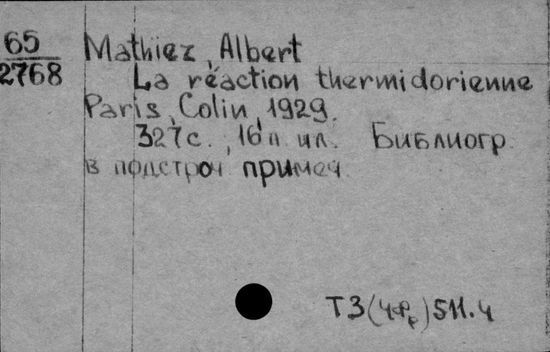 65
2768
Mathiez, Albert
La réaction thermidorienne
Paris, Colin, 1929.
327с., 16л ил. Библиогр
в подстроч примеч
Т3(4Фр)511.4